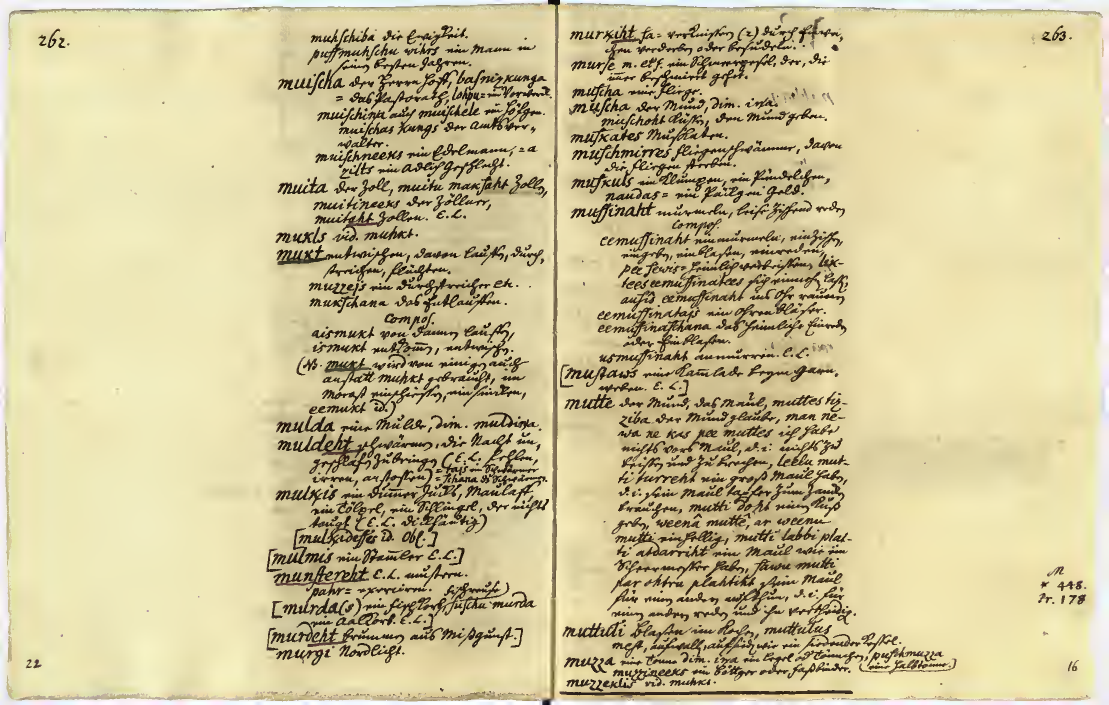 262.
muhschiba die Ewigkeit.
pussmuhschu wihrs ein Mann in
seinen besten Jahren.
muischa der Herren Hoff, basnizkunga
= das Pastorath,
muischina auch muischele ein Höfgen.
muischas kungs der Amtsver=
walter.
muischneeks ein Edelmann, = a
zilts ein Adlich Geschlecht.
muita der Zoll, muitu maksaht Zollen,
muitineeks der Zöllner,
muitoht Zollen. E. L.
mukls vid. muhkt.
mukt entwischen, davon lauffen, durch,
streichen, flüchten.
muzzejs ein durchstreicher etc.
mukschana das Entlauffen.
Compos.
aismukt von dannen lauffen,
ismukt entkommen, entwischen.
(NB. mukt wird von einigen auch
anstatt muhkt gebraucht, im
Morast einschiessen, einsincken,
eemukt id.)
mulda eine Mulde, dim. muldina.
muldeht die Nacht un,
geschlaffen zubringen (E. L. fehlen,
irren, anstossen)
mulkis ein dummer Jucks, Maulaff.
ein Tölpel, ein Schlingel, der nichts
taugt (E. L. dickhäutig)
[mulkidesses id. Obl.]
[mulmis ein Stamler E. L.]
munstereht E. L. mustern.
pahr= exerciren.
[murda(s) ein Fischkorb, suschu murda
ein Aalkorb. E. L.]
[murdeht brummen aus Missgunst.]
murgi Nordlicht.
22
263.
murkiht sa= verknisten (2) durch
chen verderben oder besudeln.
murse m. et f. ein Schmergesel, der, die
immer beschmiert gehet.
muscha eine Fliege.
muscha der Mund, dim. ina.
muschoht küssen, den Mund geben.
muskates Muskaten.
muschmirres Fliegenschwämme, davon
die Fliegen sterben.
muskuls ein Klumpen, ein Bündelchen,
naudas= ein Päckgen Geld.
mussinaht murmeln, leise zischend reden
Compos.
eemussinaht einmurmeln, einzischen,
eingeben, einblasen, einreden,
pee sewis= heimlich verbeissen, lik=
tees eemussinatees sich einnehmen lassen,
ausis eemussinaht ins Ohr raunen
eemussinatajs ein Ohrenbläser.
eemussinaschana das heimliche Einreden
oder Einblasen.
usmussinaht anmurren. E. L.
[mustaws eine Kamlade beym Garn,
weben. E. L.]
mutte der Mund, das Maul, muttes tiz=
ziba der Mundglaube, man ne=
wa ne kas pee muttes ich habe
nichts vors Maul, d. i. nichts zu
beissen und zu brechen, leelu mut=
ti turreht ein groß Maul haben,
d. i. sein Maul tapfer zum Zanken
brauchen, mutti doht einen Kuß
geben, weenâ muttê, ar weenu
mutti einhellig, mutti labbi plat=
ti atdarriht ein Maul wie ein
Scheermesser haben, sawu mutti
par ohtru plahtiht sein Maul
für einen andern aufthun, d. i. für
einen andern reden und ihn vertheidigen.
muttuli Blasen im Kochen, muttulus
mest, aufwallen, aufsieden, wie ein siedender Kessel.
muzza eine Tonne dim. ina ein Legel od. Tönnchen, pusmuzza
(eine Halbtonne.)
muzzineeks ein Böttger oder Faßbinder.
muzzeklis vid. muhkt.
M
* 448.
Pr. 178
16